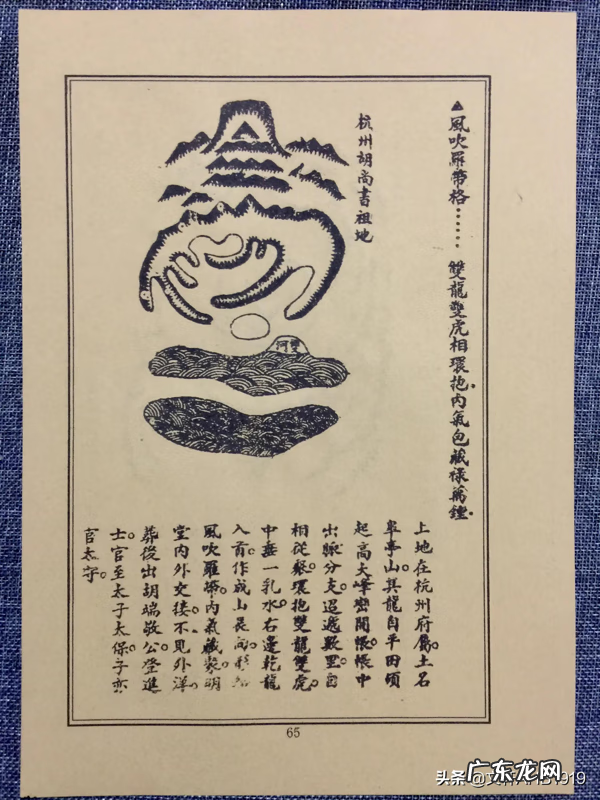 ▲風吹羅帶格……　雙龍雙虎相環抱內氣包藏祿萬鍾。
杭州胡尚書祖地
雙河
上地在杭州府屬。土名
皐亭山。其龍自平田頓
起高大峰巒開帳。帳中
出脉分支。迢遞數里。
相從。繫環抱。雙龍雙虎。
中垂一乳。水右邊乾龍
入首。作成山艮向
風吹羅帶。內氣藏聚。明
堂內外交接。不見外洋。
葬後出胡端敬公。登進
士。官至太子太保。子
官太守。
65
头条 @
1919
广东龙网